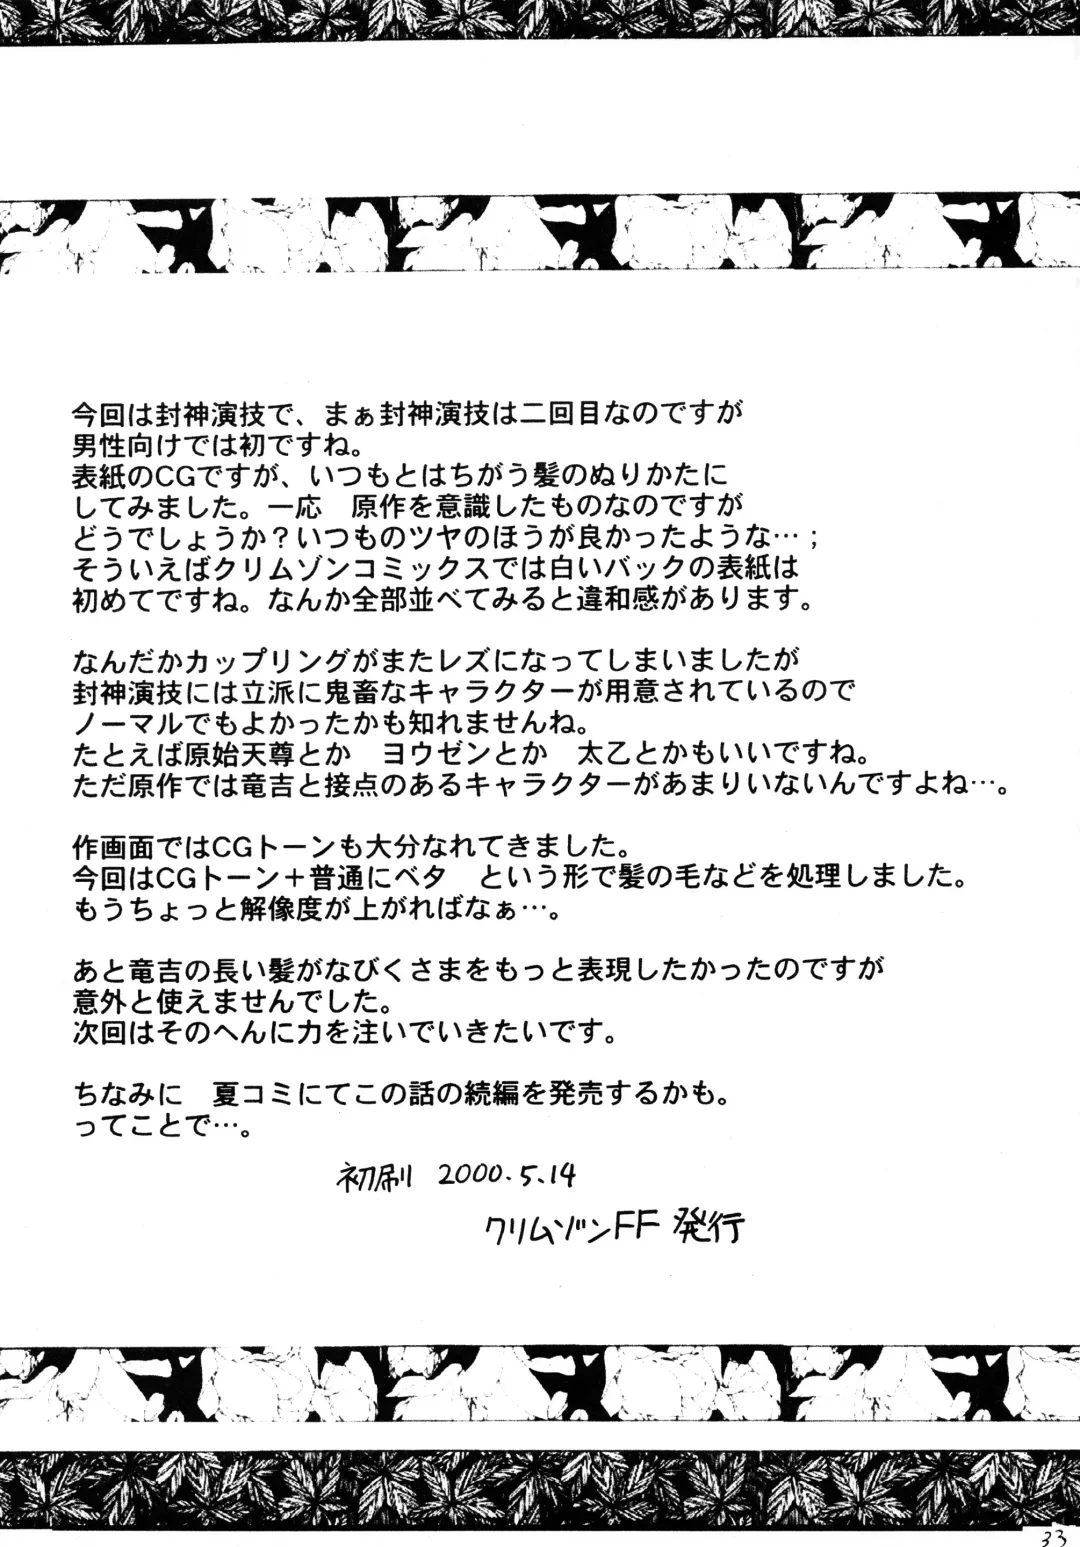 今回は封神演技で、まぁ封神演技は二回目なのですが
男性向けでは初ですね。
表紙のCGですが、いつもとはちがう髪のぬりかたに
してみました。一応　原作を意識したものなのですが
どうでしょうか？いつものツヤのほうが良かったような…；
そういえばクリムゾンコミックスでは白いバックの表紙は
初めてですね。なんか全部並べてみると違和感があります。
なんだかカップリングがまたレズになってしまいましたが
封神演技には立派に鬼畜なキャラクターが用意されているので
ノーマルでもよかったかも知れませんね。
たとえば原始天尊とか　ヨウゼンとか　太乙とかもいいですね。
ただ原作では竜吉と接点のあるキャラクターがあまりいないんですよね…。
作画面ではCGトーンも大分なれてきました。
今回はCGトーン＋普通にベタ　という形で髪の毛などを処理しました。
もうちょっと解像度が上がればなぁ…。
あと竜吉の長い髪がなびくさまをもっと表現したかったのですが
意外と使えませんでした。
次回はそのへんに力を注いでいきたいです。
ちなみに　夏コミにてこの話の続編を発売するかも。
ってことで…。
初刷 2000.5.14
クリムゾンFF 発行
33